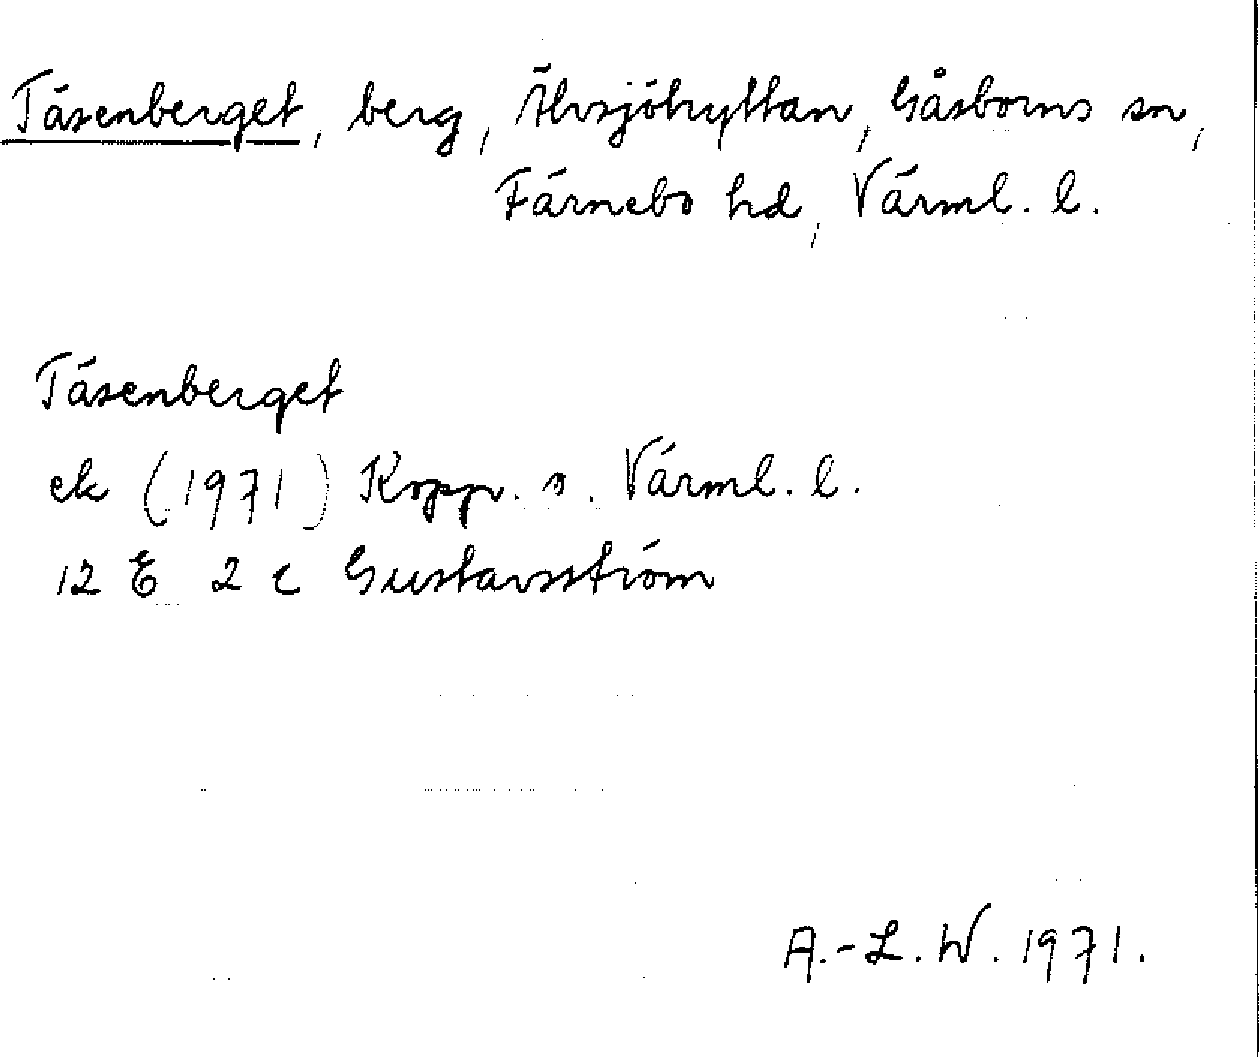 Täsenberget, berg, Älvsjöhyttan, Gåsborns sn,
Färnebo hd, Värml. l.
Täsenberget
ek (1971) Kopp. o. Värml. l.
12 E 2 c Gustavsström
A.-L. W. 1971.